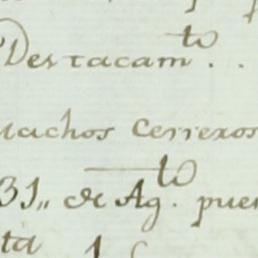 Destacam.to . .
machos Cerreros
31,, de Ag.to pue
ta